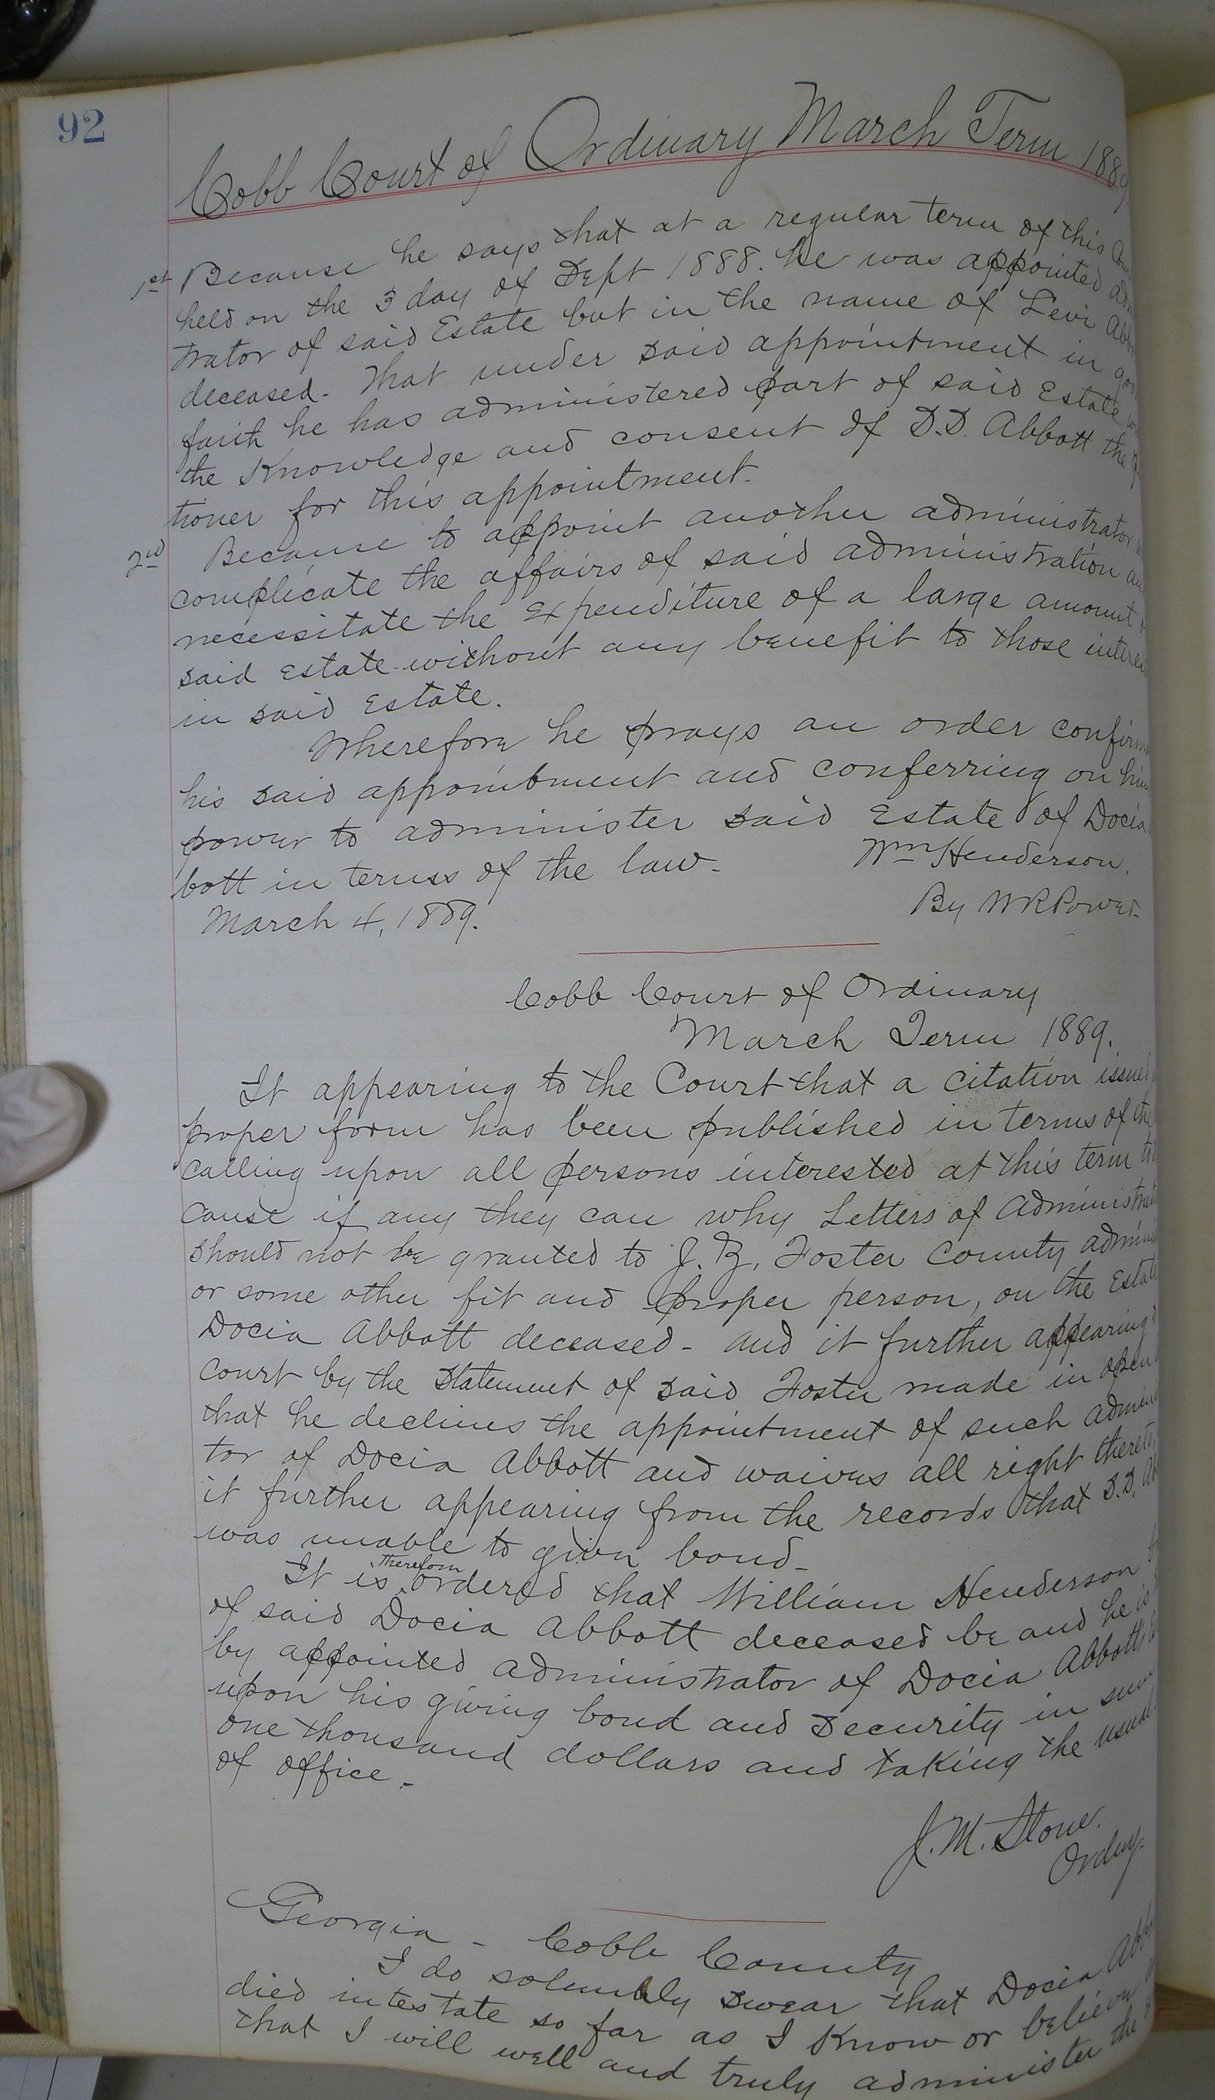 92
Cobb Court of Ordinary March Term 1889
1st Because he says that at a regular term of this
held on the 3 day of Sept 1888. he was appointed adm
trator of said Estate but in the name of Levi Abb
deceased. That under said appointment in goo
faith he has administered part of said Estate
the Knowledge and consent of D.D. Abbott the
tioner for this appointment.
2nd Because to appoint another administrator
complicate the affairs of said administration an
necessitate the Expenditure of a large amount
said Estate without any benefit to those interes
in said Estate.
Wherefore he prays an order confirm
his said appointment and conferring on him
power to administer said Estate of Docia
bott in terms of the law.
Wm Henderson.
March 4, 1889.
By W R Power
Cobb Court of Ordinary
March Term 1889.
It appearing to the Court that a citation issued
proper form has been published in terms of the
calling upon all persons interested at this term to
cause if any they can why Letters of Administrat
should not be granted to J. Z. Foster County admini
or some other fit and proper person, on the Estate
Docia Abbott deceased - and it further appearing
court by the Statement of said Foster made in open
that he declines the appointment of such admini
tor of Docia Abbott and waives all right thereto
it further appearing from the records that D.D. Ab
was unable to given bond -
It is Therefore ordered that William Henderson
of said Docia Abbott deceased be and he is
by appointed administrator of Docia Abbott
upon his giving bond and Security in sum
one thousand dollars and taking the usual
of office -
J. M. Stone.
Ordny.
Georgia - Cobb County
I do solemnly swear that Docia Abb
died intestate so far as I Know or believe
that I will well and truly administer the